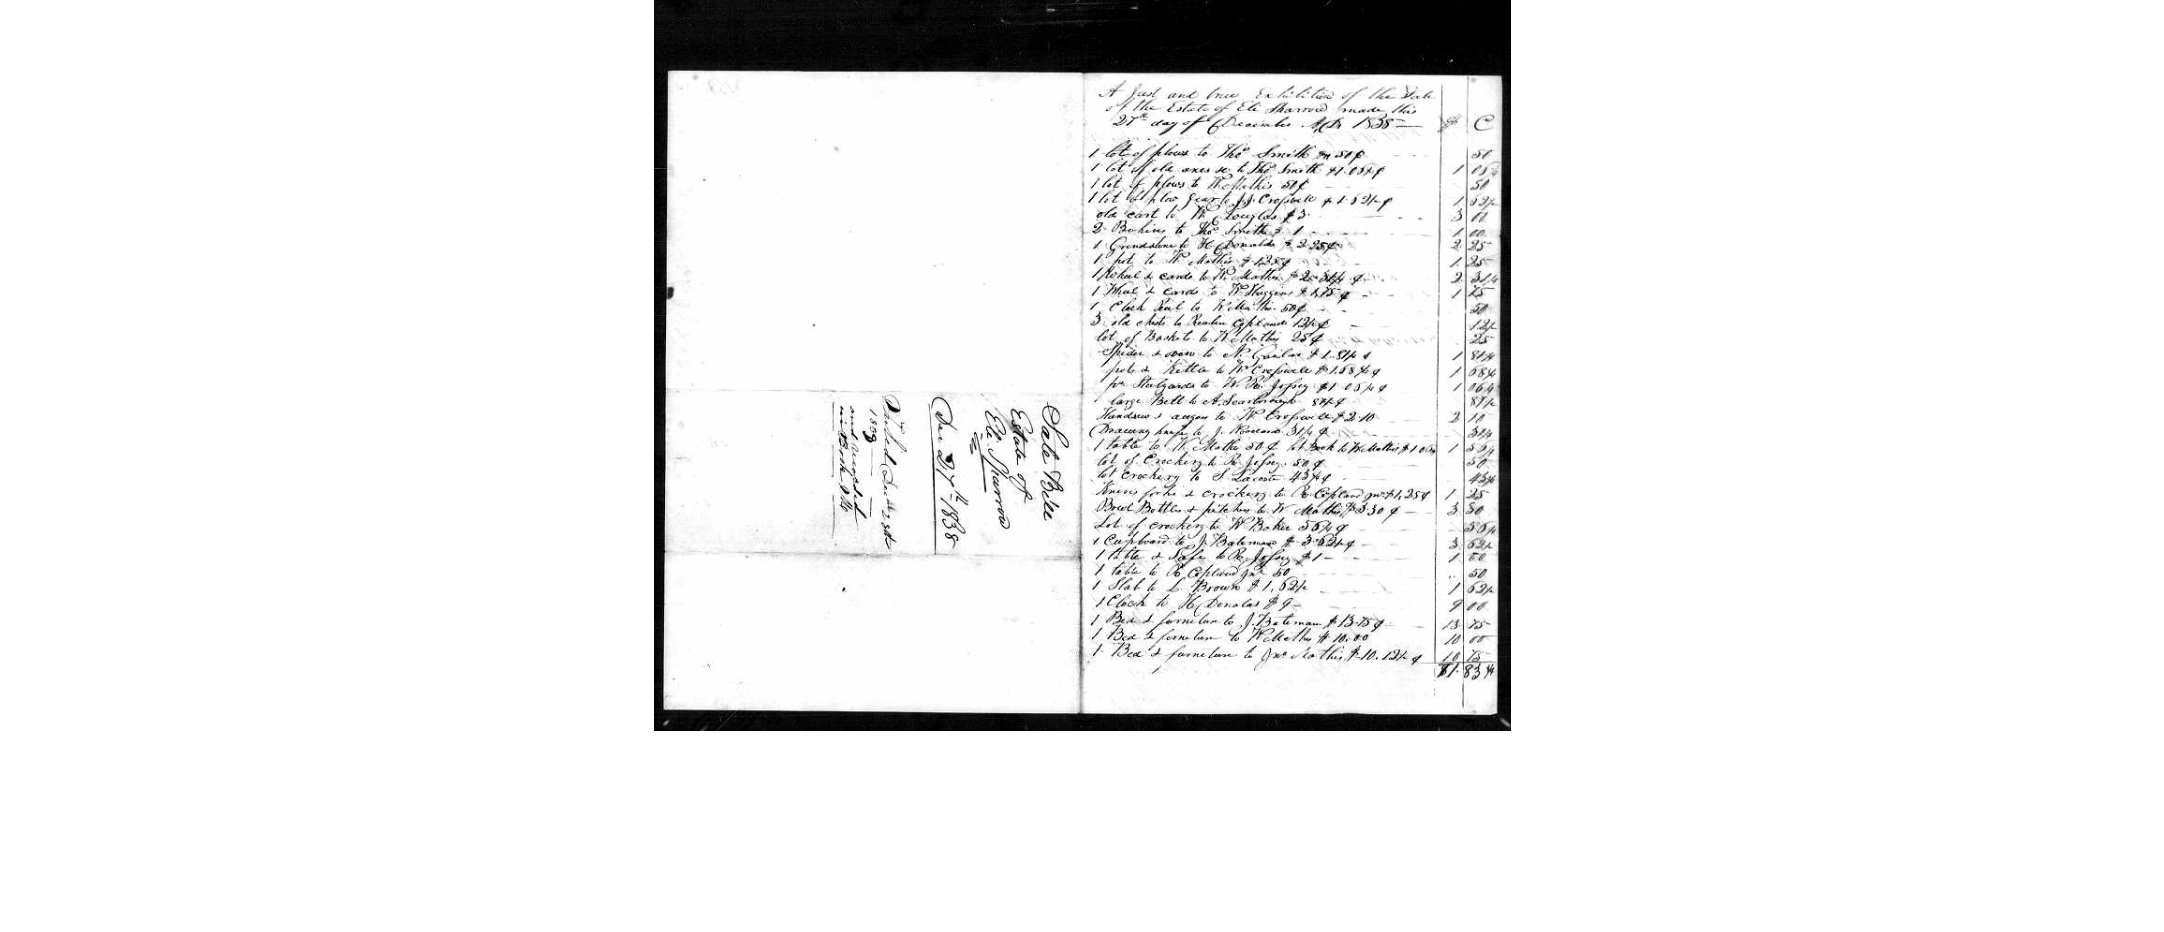 A Just and true Exhibition of the Sale
of the Estate of Eli Sharrow made this
27th day of December AD 1838
$ C
1 lot of plows to Thos Smith 50¢ 50
1 lot of old axes to Thos Smith $1.06¼¢ 1 06¼
1 lot of plows to W Mathis 50¢ 50
1 lot of plow gear to J.J. Crosswell $1.62½¢ 1 62½
old cart to W Douglas $3 3 00
2 to Thos Smith $1 1 00
1 Grindstone to H Donalds $2.25¢ 2 25
1 pot to W Mathis $1.25¢ 1 25
1 Wheel & cards to W Mathis $2.31¼¢ 2 31¼
1 Wheel & cards to W Huggins $1.75¢ 1 75
1 Reel to W Mathis 50¢ 50
3 old chests to Reuben Copeland 12½¢ 12½
lot of Baskets to W Mathis 25¢ 25
Spider & oven to N. $1.81¼¢ 1 81¼
pots & Kettle to W Crosswell $1.68¾¢ 1 68¾
pr Stulyards to W. R. Jossey $1.06¼¢ 1 06¼
large Bell to A. Scarborough 87½¢ 87½
Handsaw & augers to W Crosswell $2.10 2 10
Drawing knife to J. 31¼¢ 31¼
1 table to W. Mathis 50¢ lot Book to W Mathis $1.06¼ 1 56¼
lot of Crockery to R Jossey 50¢ 50
lot crockery to S Lacoste 43¾¢ 43¾
Knives forks & crockery to R Copland Jnr $1.25¢ 1 25
Bottles & pitcher to W Mathis $3.30¢ 3 30
Lot of crockery to W Baker 56¼¢ 56¼
1 Cupboard to J. Bateman $3.62½¢ 3 62½
1 & Safe to R. Jossey $1 1 00
1 table to R Copland Jnr 50 50
1 Slab to L Brown $1.62½ 1 62½
1 Clock to H Donalds $9 9 00
1 Bed & furniture to J. Bateman $13.75¢ 13 75
1 Bed & furniture to W Mathis $10.00 10 00
1 Bed & furniture to Jno Mathis $10.12½¢ 10 75
83¾
Sale Bill
Estate of
Eli Sharrow
Dec 27th 1838
28th
1838
and recorded
in Book